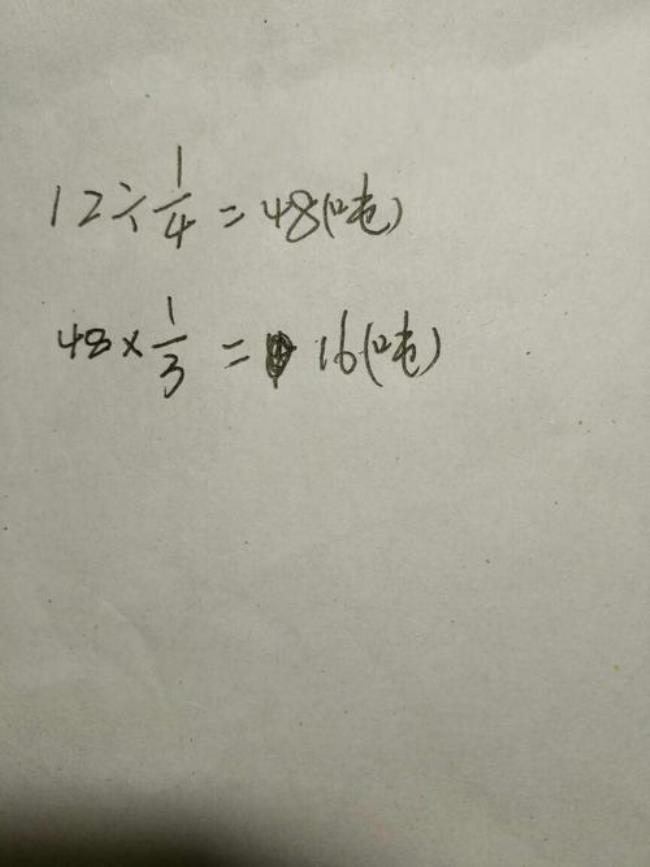 12÷1/4=48(吨)
48×1/3=16(吨)